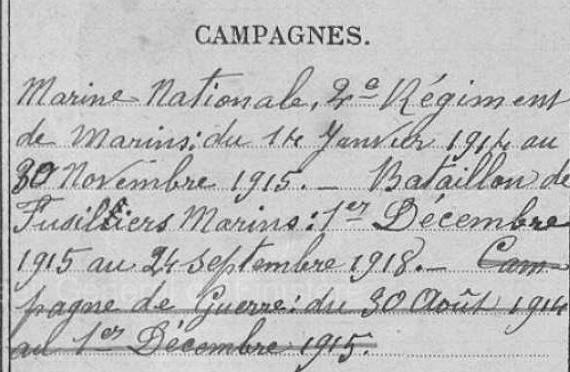 CAMPAGNES.
Marine Nationale, 2e Régiment
de Marins: du 14 Janvier 1914 au
30 Novembre 1915. — Bataillon de
Fusiliers Marins: 1er Décembre
1915 au 24 septembre 1918. — Cam-
pagne de Guerre: du 30 Août 1914
au 1er Décembre 1915.